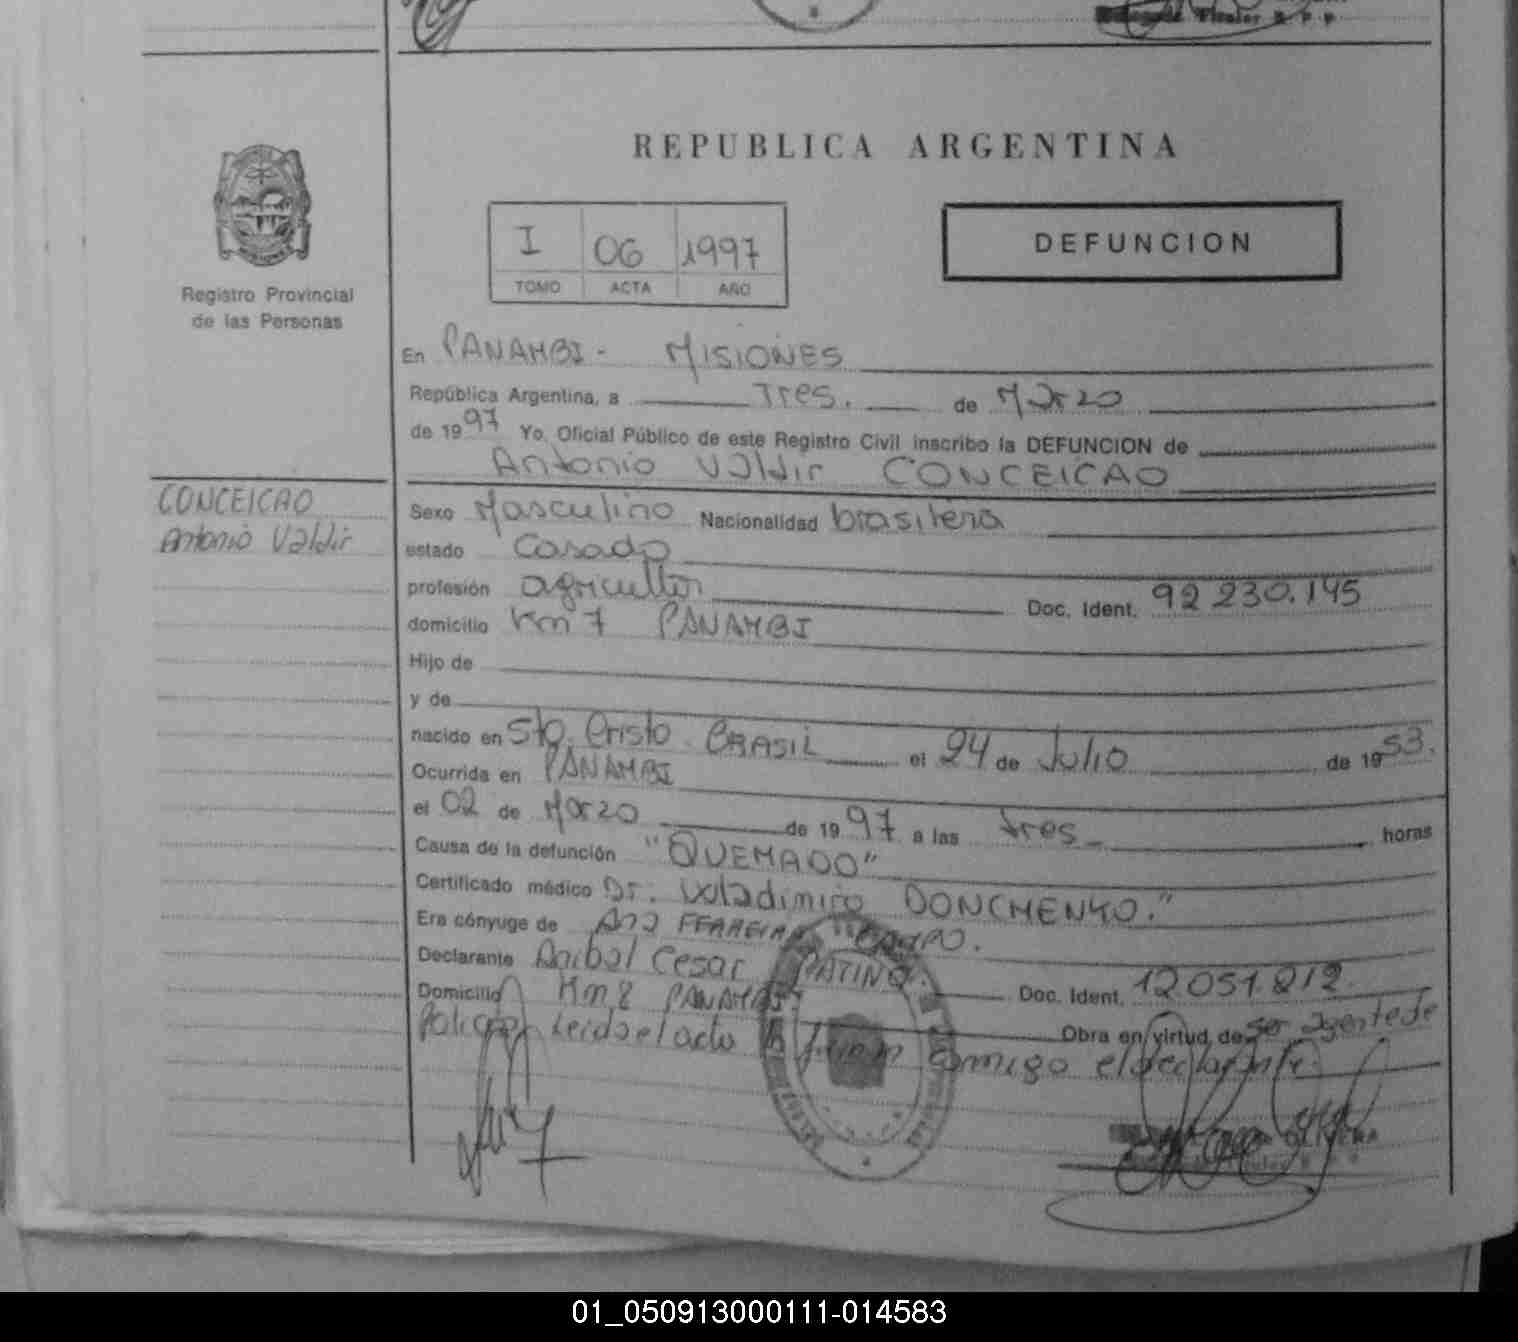 Titular R. P. P.
REPUBLICA ARGENTINA
I 06 1997
TOMO ACTA AÑO
DEFUNCION
Registro Provincial
de las Personas
En PANAMBI - MISIONES
República Argentina, a Tres. de Marzo
de 1997 Yo, Oficial Público de este Registro Civil inscribo la DEFUNCION de
Antonio Valdir CONCEICAO
CONCEICAO
Antonio Valdir
Sexo Masculino Nacionalidad brasilera
estado Casado
profesión agricultor Doc. Ident. 92 230.145
domicilio Km 7 PANAMBI
Hijo de
y de
nacido en Sto. Cristo. BRASIL el 24 de Julio de 1953.
Ocurrida en PANAMBI
el 02 de Marzo de 1997 a las tres horas
Causa de la defunción "QUEMADO"
Certificado médico Dr. Wladimiro DONCHENKO."
Era cónyuge de Ana FERREIRA CAMPO.
Declarante Anibal Cesar PATIÑO. Doc. Ident. 12.051.212.
Domicilio Km 8 PANAMBI. Obra en virtud de ser agente de
Policía, Leido el acta firman conmigo el declarante.
01_050913000111-014583